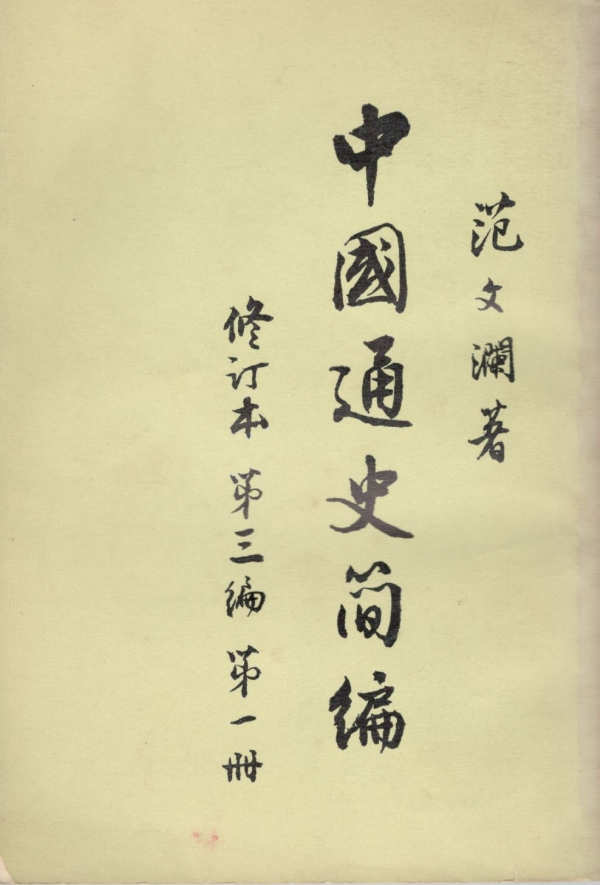 范文瀾著
中國通史简编
修订本 第三编 第一册